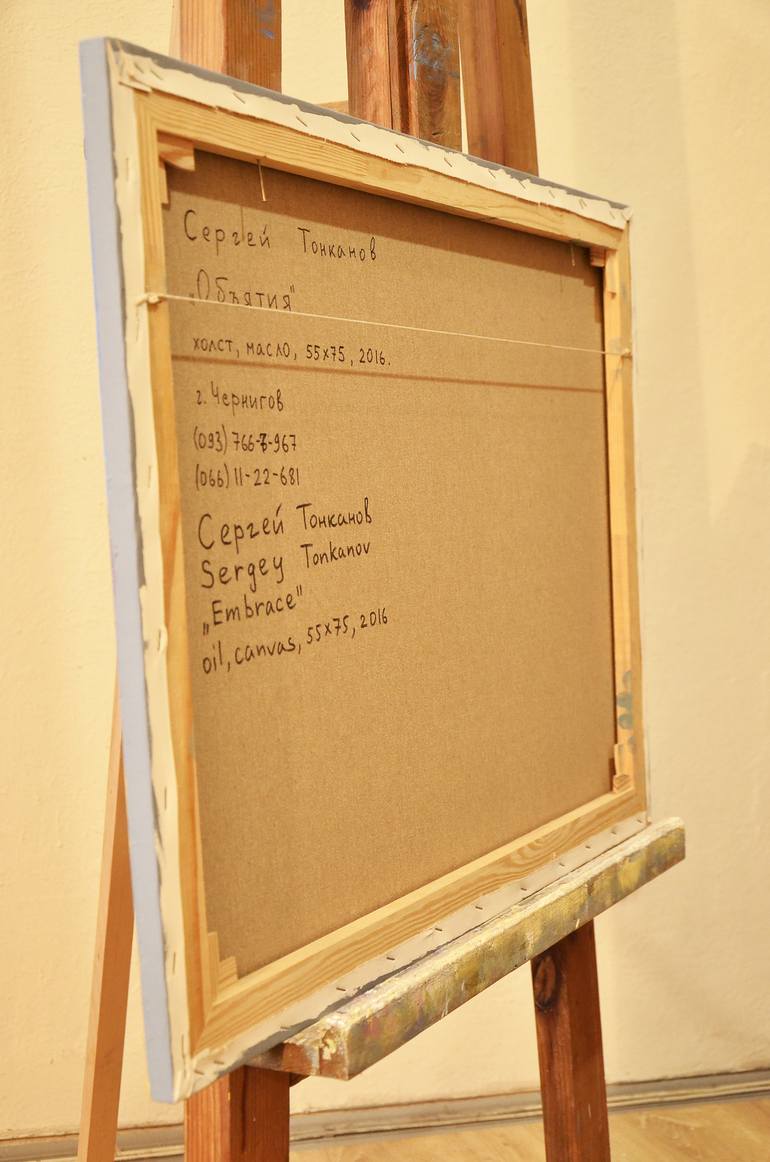 Сергей Тонканов
„Объятия"
холст, масло, 55x75, 2016.
г. Чернигов
(093) 766-7-967
(066) 11-22-681
Сергей Тонканов
Sergey Tonkanov
„Embrace"
oil, canvas, 55x75, 2016